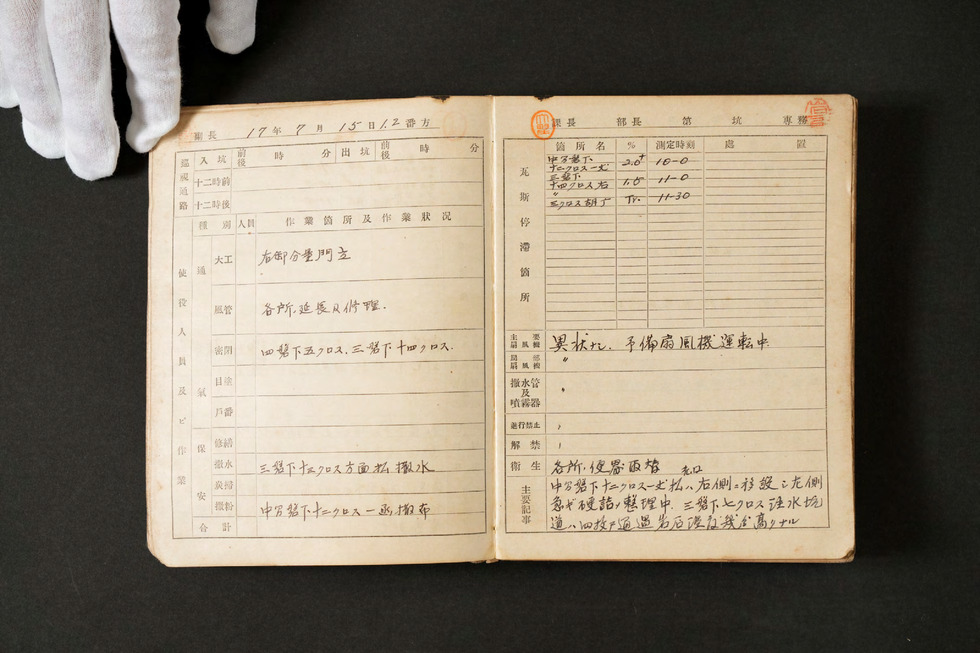 座長 17年7月15日1.2番方
巡視通路
入坑 前後 時 分 出坑 前後 時 分
十二時前
十二時後
使役人員及ビ作業
種別 人員 作業箇所及作業狀況
通氣
大工 右卸分量門立
風管 各所延長及修理.
密閉 四盤下五クロス、三盤下十四クロス.
目塗
戸番
保安
修繕
撒水 三盤下十二クロス方面払撒水
炭掃
撒粉 中分盤下十二クロス一
合計
課長 部長 第 坑 専務
瓦斯停滯箇所
箇所名 % 測定時刻 處置
中分盤下
十二クロス一 2.0+ 10-0
三盤下
十四クロス右 1.5 11-0
〃
三クロス Tr. 11-30
主要扇風機 異状ナシ、予備扇風機運転中
局部扇風機 〃
撒水管及噴霧器 〃
進行禁止 〃
解禁 〃
衛生 各所便器取替
主要記事 中分盤下十二クロス 払ハ右側ニ移設シ左側
急ギ硬詰ノ整理中. 三盤下七クロス 水坑
道ハ四